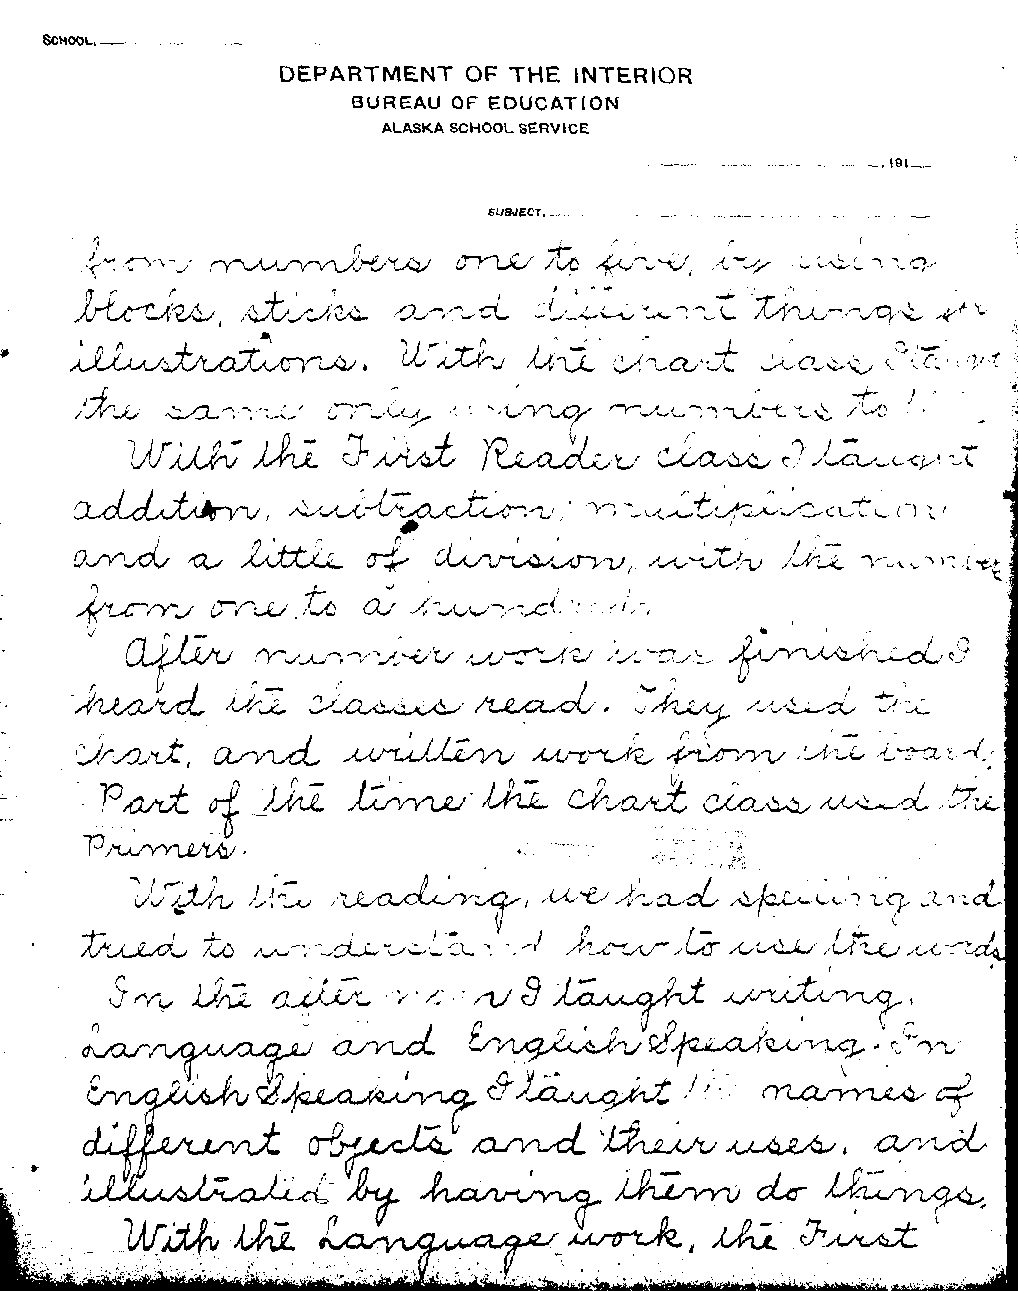 SCHOOL,
DEPARTMENT OF THE INTERIOR
BUREAU OF EDUCATION
ALASKA SCHOOL SERVICE
, 191
SUBJECT,
from numbers one to five, by using
blocks, sticks and different things for
illustrations. With the chart class I taught
the same only using numbers to
With the First Reader class I taught
addition, subtraction, multiplication
and a little of division, with the number
from one to a hundred.
After number work was finished I
heard the classes read. They used the
chart, and written work from the board.
Part of the time the chart class used the
Primers.
With the reading, we had spelling and
tried to understand how to use the words
In the after noon I taught writing,
Language and English Speaking. In
English Speaking I taught the names of
different objects and their uses, and
illustrated by having them do things.
With the Language work, the First